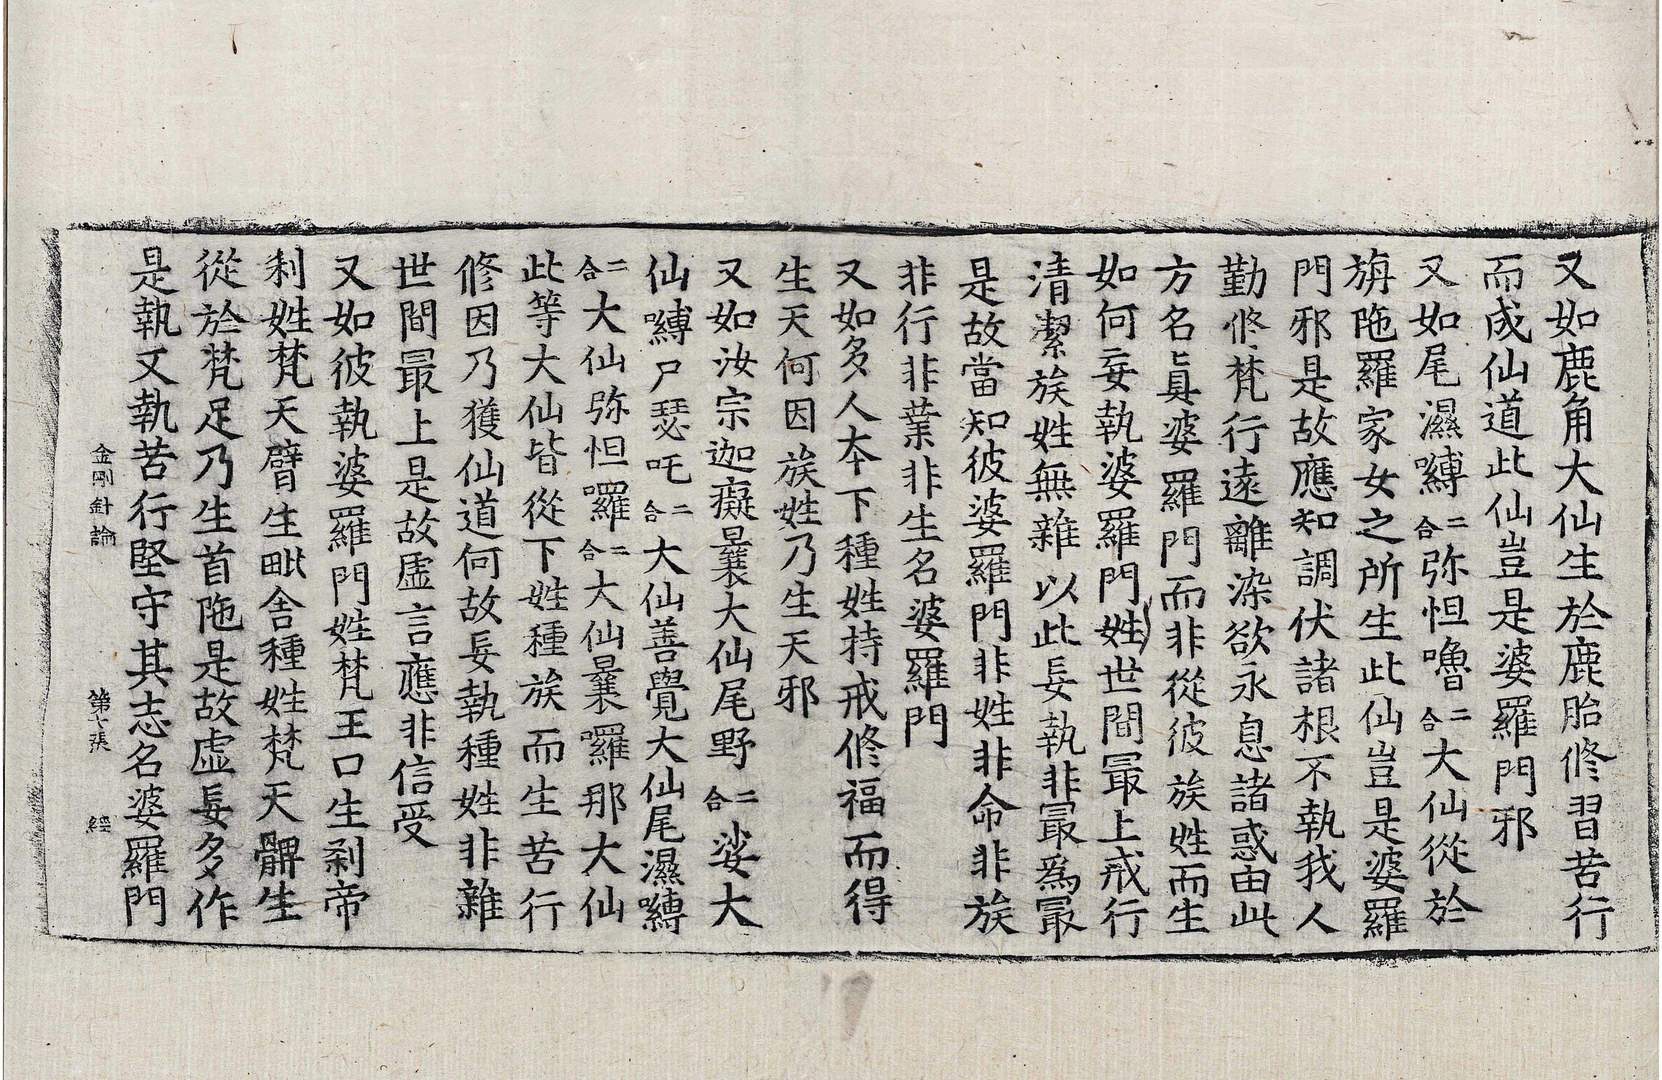 又如鹿角大仙生於鹿胎修習苦行
而成仙道此仙豈是婆羅門邪
又如尾濕嚩二合弥怛嚕二合大仙從於
旃陁羅家女之所生此仙豈是婆羅
門邪是故應知調伏諸根不執我人
勤修梵行遠離染欲永息諸惑由此
方名真婆羅門而非從彼族姓而生
如何妄執婆羅門姓世間最上戒行
清潔族姓無雜以此妄執非最爲最
是故當知彼婆羅門非姓非命非族
非行非業非生名婆羅門
又如多人本下種姓持戒修福而得
生天何因族姓乃生天邪
又如汝宗迦癡曩大仙尾野二合娑大
仙嚩尸瑟吒二合大仙善覺大仙尾濕嚩
二合大仙弥怛囉二合大仙曩囉那大仙
此等大仙皆從下姓種族而生苦行
修因乃獲仙道何故妄執種姓非雜
世間最上是故虛言應非信受
又如彼執婆羅門姓梵王口生剎帝
利姓梵天臂生毗舍種姓梵天髀生
從於梵足乃生首陁是故虛妄多作
是執又執苦行堅守其志名婆羅門
金剛針論 第七張 經